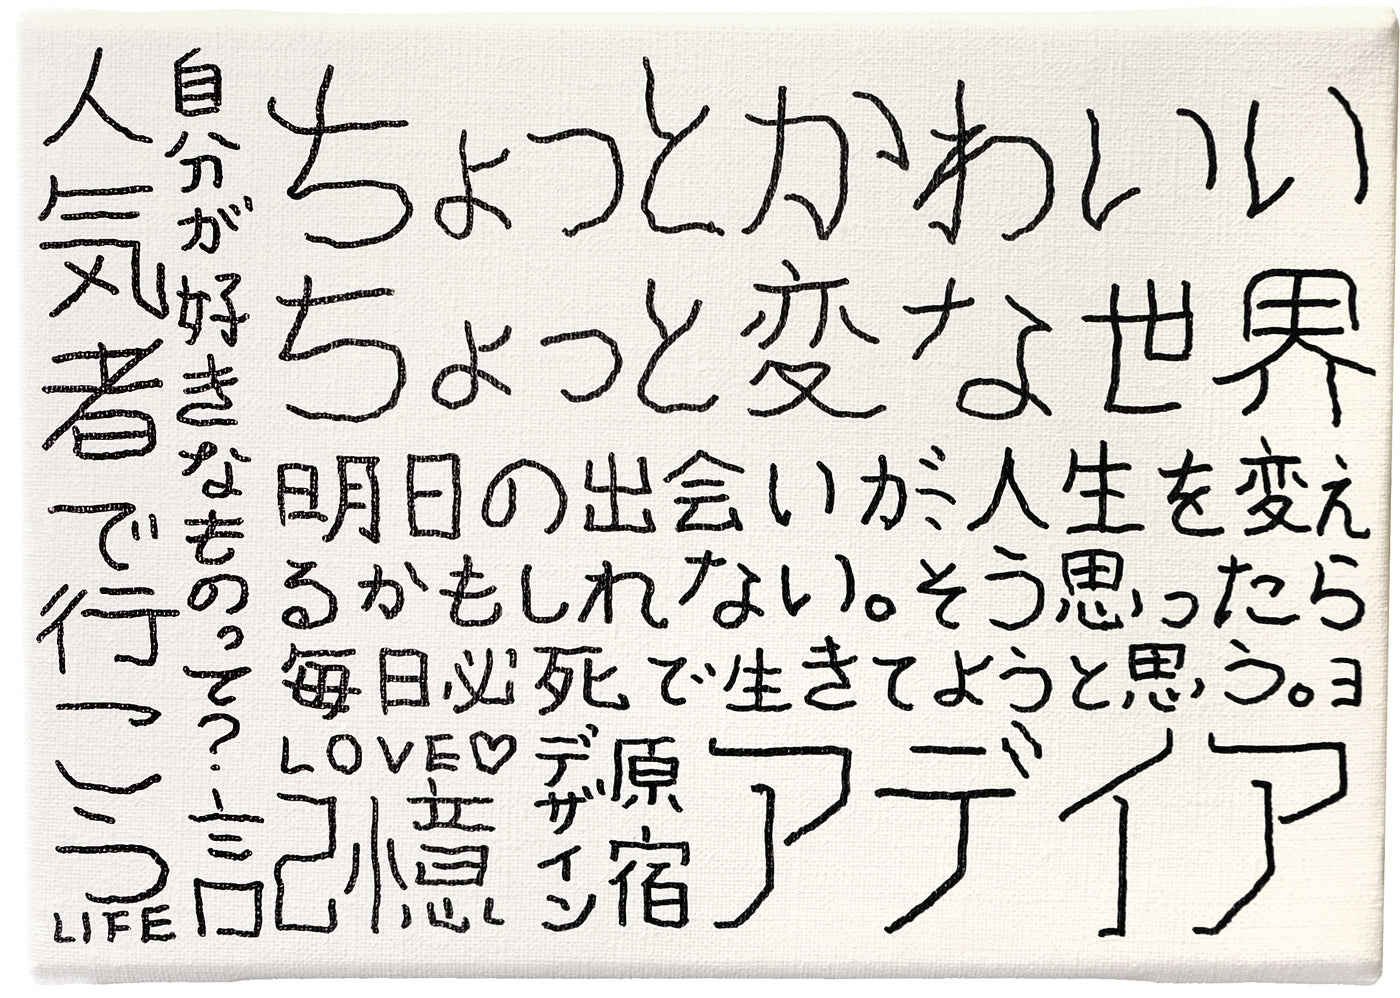 人気者で行こう
LIFE
自分が好きなものって?
ちょっとかわいい
ちょっと変な世界
明日の出会いが、人生を変え
るかもしれない。そう思ったら
毎日必死で生きてようと思う。ヨ
LOVE♡
記憶
デザイン
原宿
アデイア